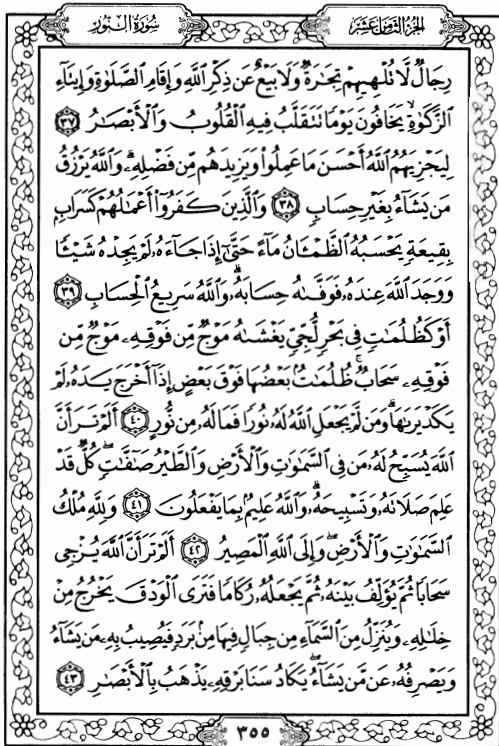 الجزء الثامن عشر
سورة النور
رِجَالٌ لَّا تُلْهِيهِمْ تِجَٰرَةٌ وَلَا بَيْعٌ عَن ذِكْرِ اللَّهِ وَإِقَامِ الصَّلَوٰةِ وَإِيتَآءِ
الزَّكَوٰةِ يَخَافُونَ يَوْمًا تَتَقَلَّبُ فِيهِ الْقُلُوبُ وَالْأَبْصَٰرُ ٣٧
لِيَجْزِيَهُمُ اللَّهُ أَحْسَنَ مَا عَمِلُوا وَيَزِيدَهُم مِّن فَضْلِهِۦ وَاللَّهُ يَرْزُقُ
مَن يَشَآءُ بِغَيْرِ حِسَابٍ ٣٨ وَالَّذِينَ كَفَرُوٓا أَعْمَٰلُهُمْ كَسَرَابٍ
بِقِيعَةٍ يَحْسَبُهُ الظَّمْـَٔانُ مَآءً حَتَّىٰٓ إِذَا جَآءَهُۥ لَمْ يَجِدْهُ شَيْـًٔا
وَوَجَدَ اللَّهَ عِندَهُۥ فَوَفَّىٰهُ حِسَابَهُۥ وَاللَّهُ سَرِيعُ الْحِسَابِ ٣٩
أَوْ كَظُلُمَٰتٍ فِي بَحْرٍ لُّجِّيٍّ يَغْشَىٰهُ مَوْجٌ مِّن فَوْقِهِۦ مَوْجٌ مِّن
فَوْقِهِۦ سَحَابٌ ظُلُمَٰتٌ بَعْضُهَا فَوْقَ بَعْضٍ إِذَآ أَخْرَجَ يَدَهُۥ لَمْ
يَكَدْ يَرَىٰهَا وَمَن لَّمْ يَجْعَلِ اللَّهُ لَهُۥ نُورًا فَمَا لَهُۥ مِن نُّورٍ ٤٠ أَلَمْ تَرَ أَنَّ
اللَّهَ يُسَبِّحُ لَهُۥ مَن فِي السَّمَٰوَٰتِ وَالْأَرْضِ وَالطَّيْرُ صَٰٓفَّٰتٍ كُلٌّ قَدْ
عَلِمَ صَلَاتَهُۥ وَتَسْبِيحَهُۥ وَاللَّهُ عَلِيمٌ بِمَا يَفْعَلُونَ ٤١ وَلِلَّهِ مُلْكُ
السَّمَٰوَٰتِ وَالْأَرْضِ وَإِلَى اللَّهِ الْمَصِيرُ ٤٢ أَلَمْ تَرَ أَنَّ اللَّهَ يُزْجِي
سَحَابًا ثُمَّ يُؤَلِّفُ بَيْنَهُۥ ثُمَّ يَجْعَلُهُۥ رُكَامًا فَتَرَى الْوَدْقَ يَخْرُجُ مِنْ
خِلَٰلِهِۦ وَيُنَزِّلُ مِنَ السَّمَآءِ مِن جِبَالٍ فِيهَا مِنۢ بَرَدٍ فَيُصِيبُ بِهِۦ مَن يَشَآءُ
وَيَصْرِفُهُۥ عَن مَّن يَشَآءُ يَكَادُ سَنَا بَرْقِهِۦ يَذْهَبُ بِالْأَبْصَٰرِ ٤٣
٣٥٥